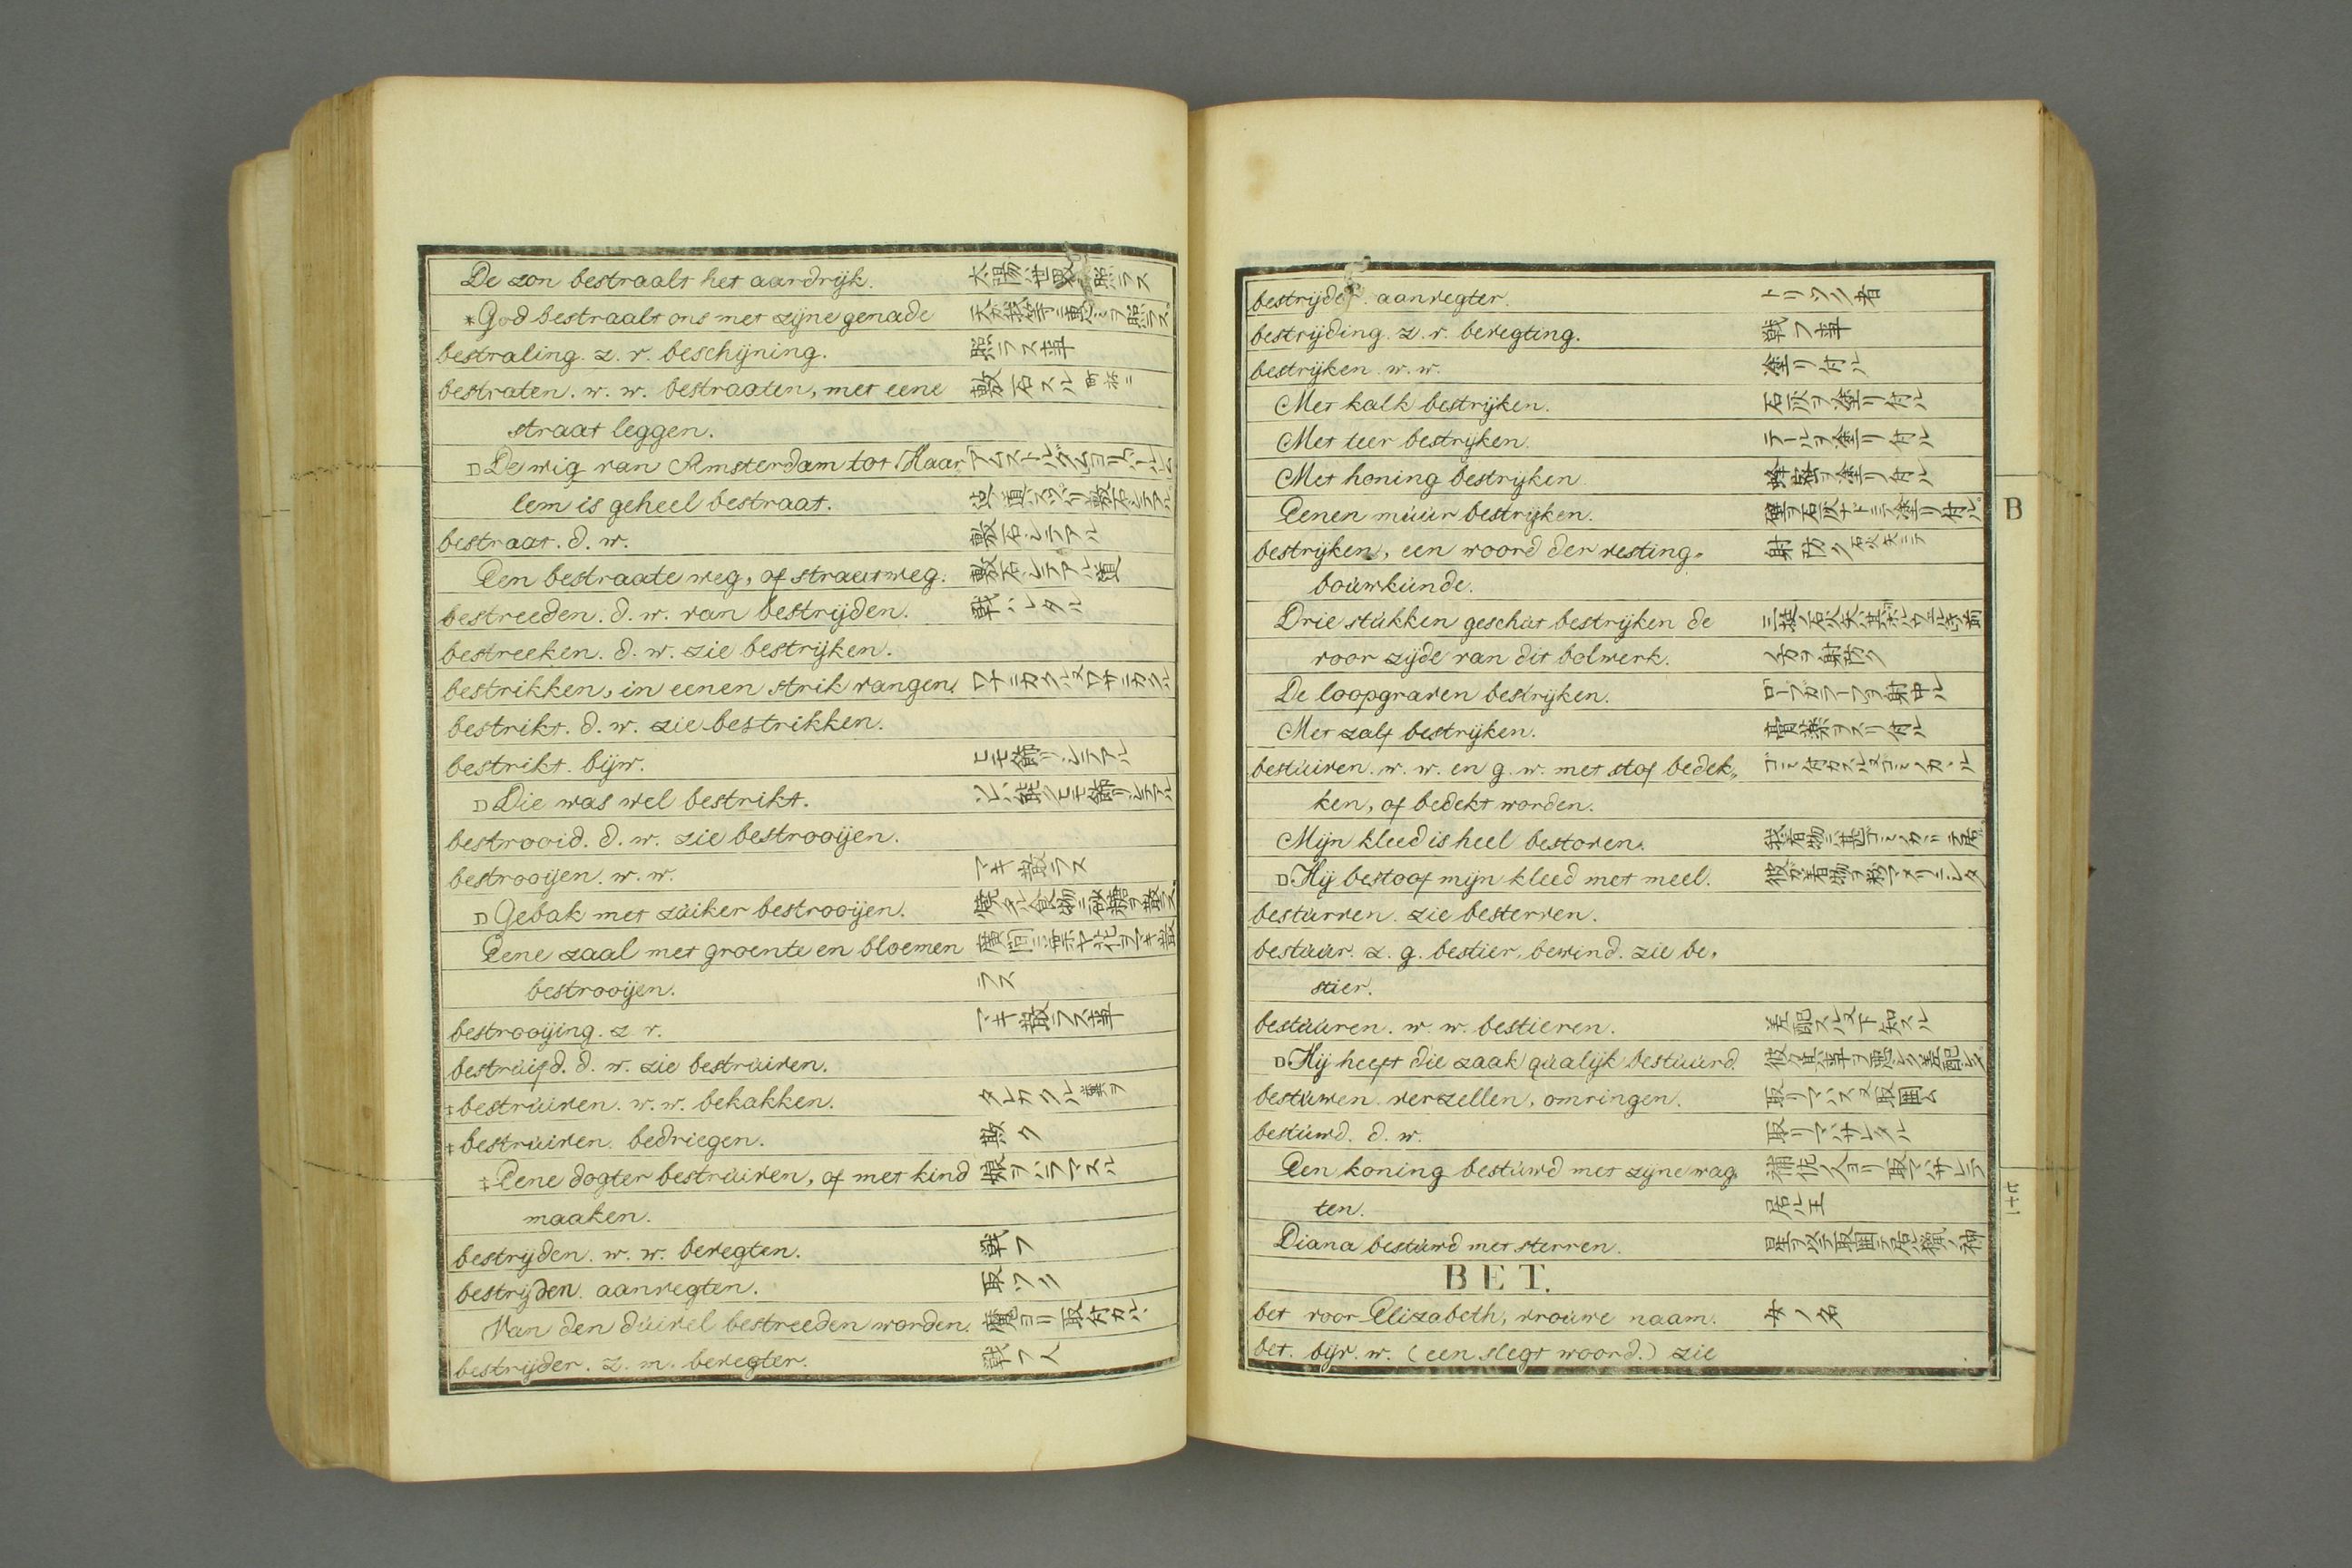 De zon bestraalt het aardrijk. 太陽ハ世界ヲ照ラス
*God bestraalt ons met zijne genade 天ガ我等ニ恵ミヲ照ラス
bestraling. z. v. beschijning. 照ラス事
bestraten. w. w. bestraaten, met eene 敷石スル 町杯ニ
straat leggen.
D De wig van Amsterdam tot Haar アムストルダムヨリハールレム
lem is geheel bestraat. 迠道スッハリ敷石シテアル
bestraat. d. w. 敷石シテアル
Een bestraate weg, of straatweg. 敷石シテアル道
bestreeden. d. w. van bestrijden. 戦ハレタル
bestreeken. d. w. zie bestrijken.
bestrikken, in eenen strik vangen. ワナニカクル又ワサニカクル
bestrikt. d. w. zie bestrikken.
bestrikt. bijw. ヒモ飾リシテアル
D Die was wel bestrikt. ソレハ能クヒモ飾リシテアル
bestrooid. d. w. zie bestrooijen.
bestrooijen. w. w. マキ散ラス
D Gebak met zùiker bestrooijen. 焼タル食物ニ砂糖ヲ散ス
Eene zaal met groente en bloemen 廣間ニ葉ヤ花ヲマキ散
bestrooijen. ラス
bestrooijing. z v. マキ散ラス事
bestrùifd. d. w. zie bestrùiven.
‡bestrùiven. w. w. bekakken. タレカクル 糞ヲ
‡bestrùiven. bedriegen. 欺ク
‡Eene dogter bestrùiven, of met kind 娘ヲハラマスル
maaken.
bestrijden. w. w. bevegten. 戦フ
bestrijden. aanvegten. 取ツク
Van den dùivel bestreeden worden. 魔ヨリ取付カル
bestrijder. z. m. bevegter. 戦フ人
bestrijder. aanvegter. トリツク者
bestrijding. z. v. bevegting. 戦フ事
bestrijken. w. w. 塗リ付ル
Met kalk bestrijken. 石灰ヲ塗リ付ル
Met teer bestrijken. テールヲ塗リ付ル
Met honing bestrijken 蜂蜜ヲ塗リ付ル
Eenen mùùr bestrijken. 壁ヲ石灰ナドニテ塗リ付ル
B
bestrijken, een woord der vesting. 射防ク 石火矢ニテ
boùwkùnde.
Drie stùkken geschùt bestrijken de 三挺ノ石火矢ハ其ボルウェルキノ前
voor zijde van dit bolwerk. ノ方ヲ射防ク
De loopgraven bestrijken. ロープガラーフヲ射中ル
Met zalf bestrijken. 膏薬ヲスリ付ル
bestùiven. w. w. en g. w. met stof bedek„ ゴミ付カスル又ゴミノカヽル
ken, of bedekt worden.
Mijn kleed is heel bestoven. 我着物ハ甚ゴミカヽリテ居
D Hij bestoof mijn kleed met meel. 彼ガ着物ヲ粉マブリニシタ
bestùrven. zie besterven.
bestùùr. z. g. bestier, bewind. zie be„
stier.
bestùùren. w. w. bestieren. 差配スル又下知スル
D Hij heeft die zaak qùalijk bestùùrd. 彼ハ其事ヲ悪シク差配シタ
bestùwen. verzellen, omringen. 取リマハス又取囲ム
bestùwd. d. w. 取リマハサレタル
Een koning bestùwd met zijne wag„ 補佐ノ人ヨリ取マハサレテ
ten. 居ル王
Diana bestùwd met sterren. 星ヲ以テ取囲テ居ル猟ノ神
BET.
bet voor Elizabeth, vroùwe naam. 女ノ名
bet. bijv. w. (een slegt woord.) zie